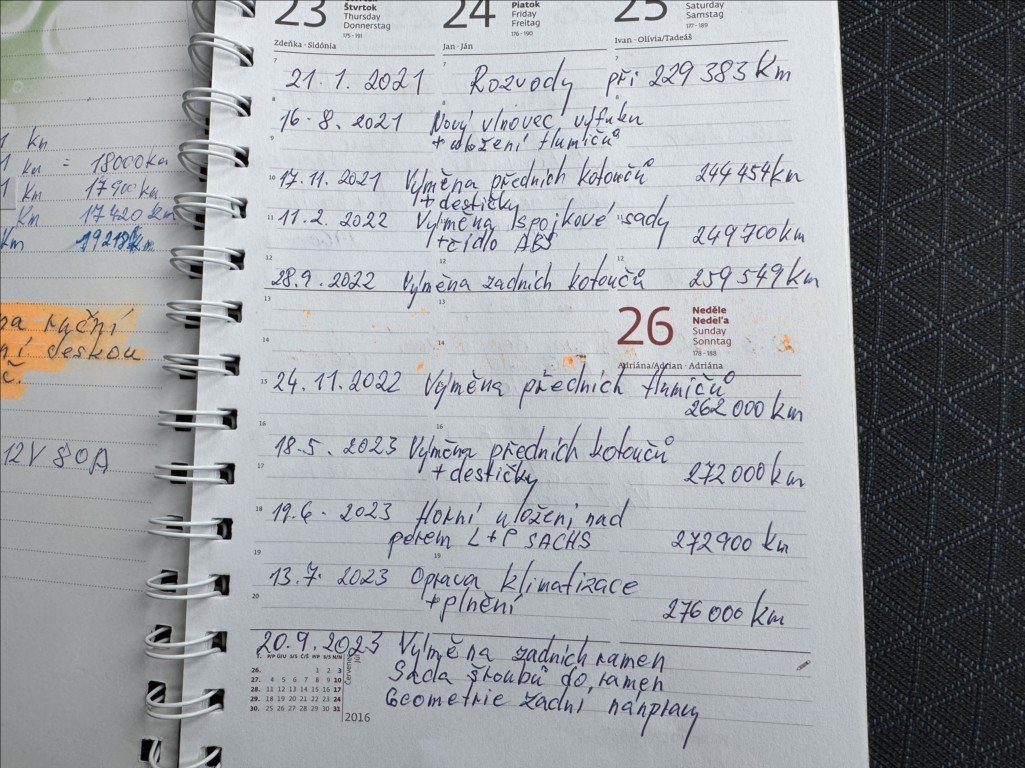 23 Štvrtok Thursday Donnerstag 175 - 191
24 Piatok Friday Freitag 176 - 190
25 Saturday Samstag 177 - 189
Zdeňka · Sidónia
Jan · Ján
Ivan · Olívia/Tadeáš
21. 1. 2021 Rozvody při 229 383 km
16. 8. 2021 Nový vlnovec výfuku
+ uložení tlumičů
17. 11. 2021 Výměna předních kotoučů 244 454 km
+ destičky
11. 2. 2022 Výměna spojkové sady
+ čidlo ABS 249 700 km
28. 9. 2022 Výměna zadních kotoučů 259 549 km
26 Neděle Nedeľa Sunday Sonntag 178 - 188
Adriána/Adrian · Adriána
24. 11. 2022 Výměna předních tlumičů
262 000 km
18. 5. 2023 Výměna předních kotoučů
+ destičky 272 000 km
19. 6. 2023 Horní uložení nad
perem L + P SACHS 272 900 km
13. 7. 2023 Oprava klimatizace
+ plnění 276 000 km
20. 9. 2023 Výměna zadních ramen
Sada šroubů do ramen
Geometrie zadní nápravy
T. P/P Ú/U S/S Č/Š P/P S/S N/N
26. 1 2 3
27. 4 5 6 7 8 9 10
28. 11 12 13 14 15 16 17
29. 18 19 20 21 22 23 24
30. 25 26 27 28 29 30 31
Červenec
Júl
2016
1 km
1 km = 18000 km
1 km 17900 km
km 17420 km
km
ruční
deskou
č.
12V 80A